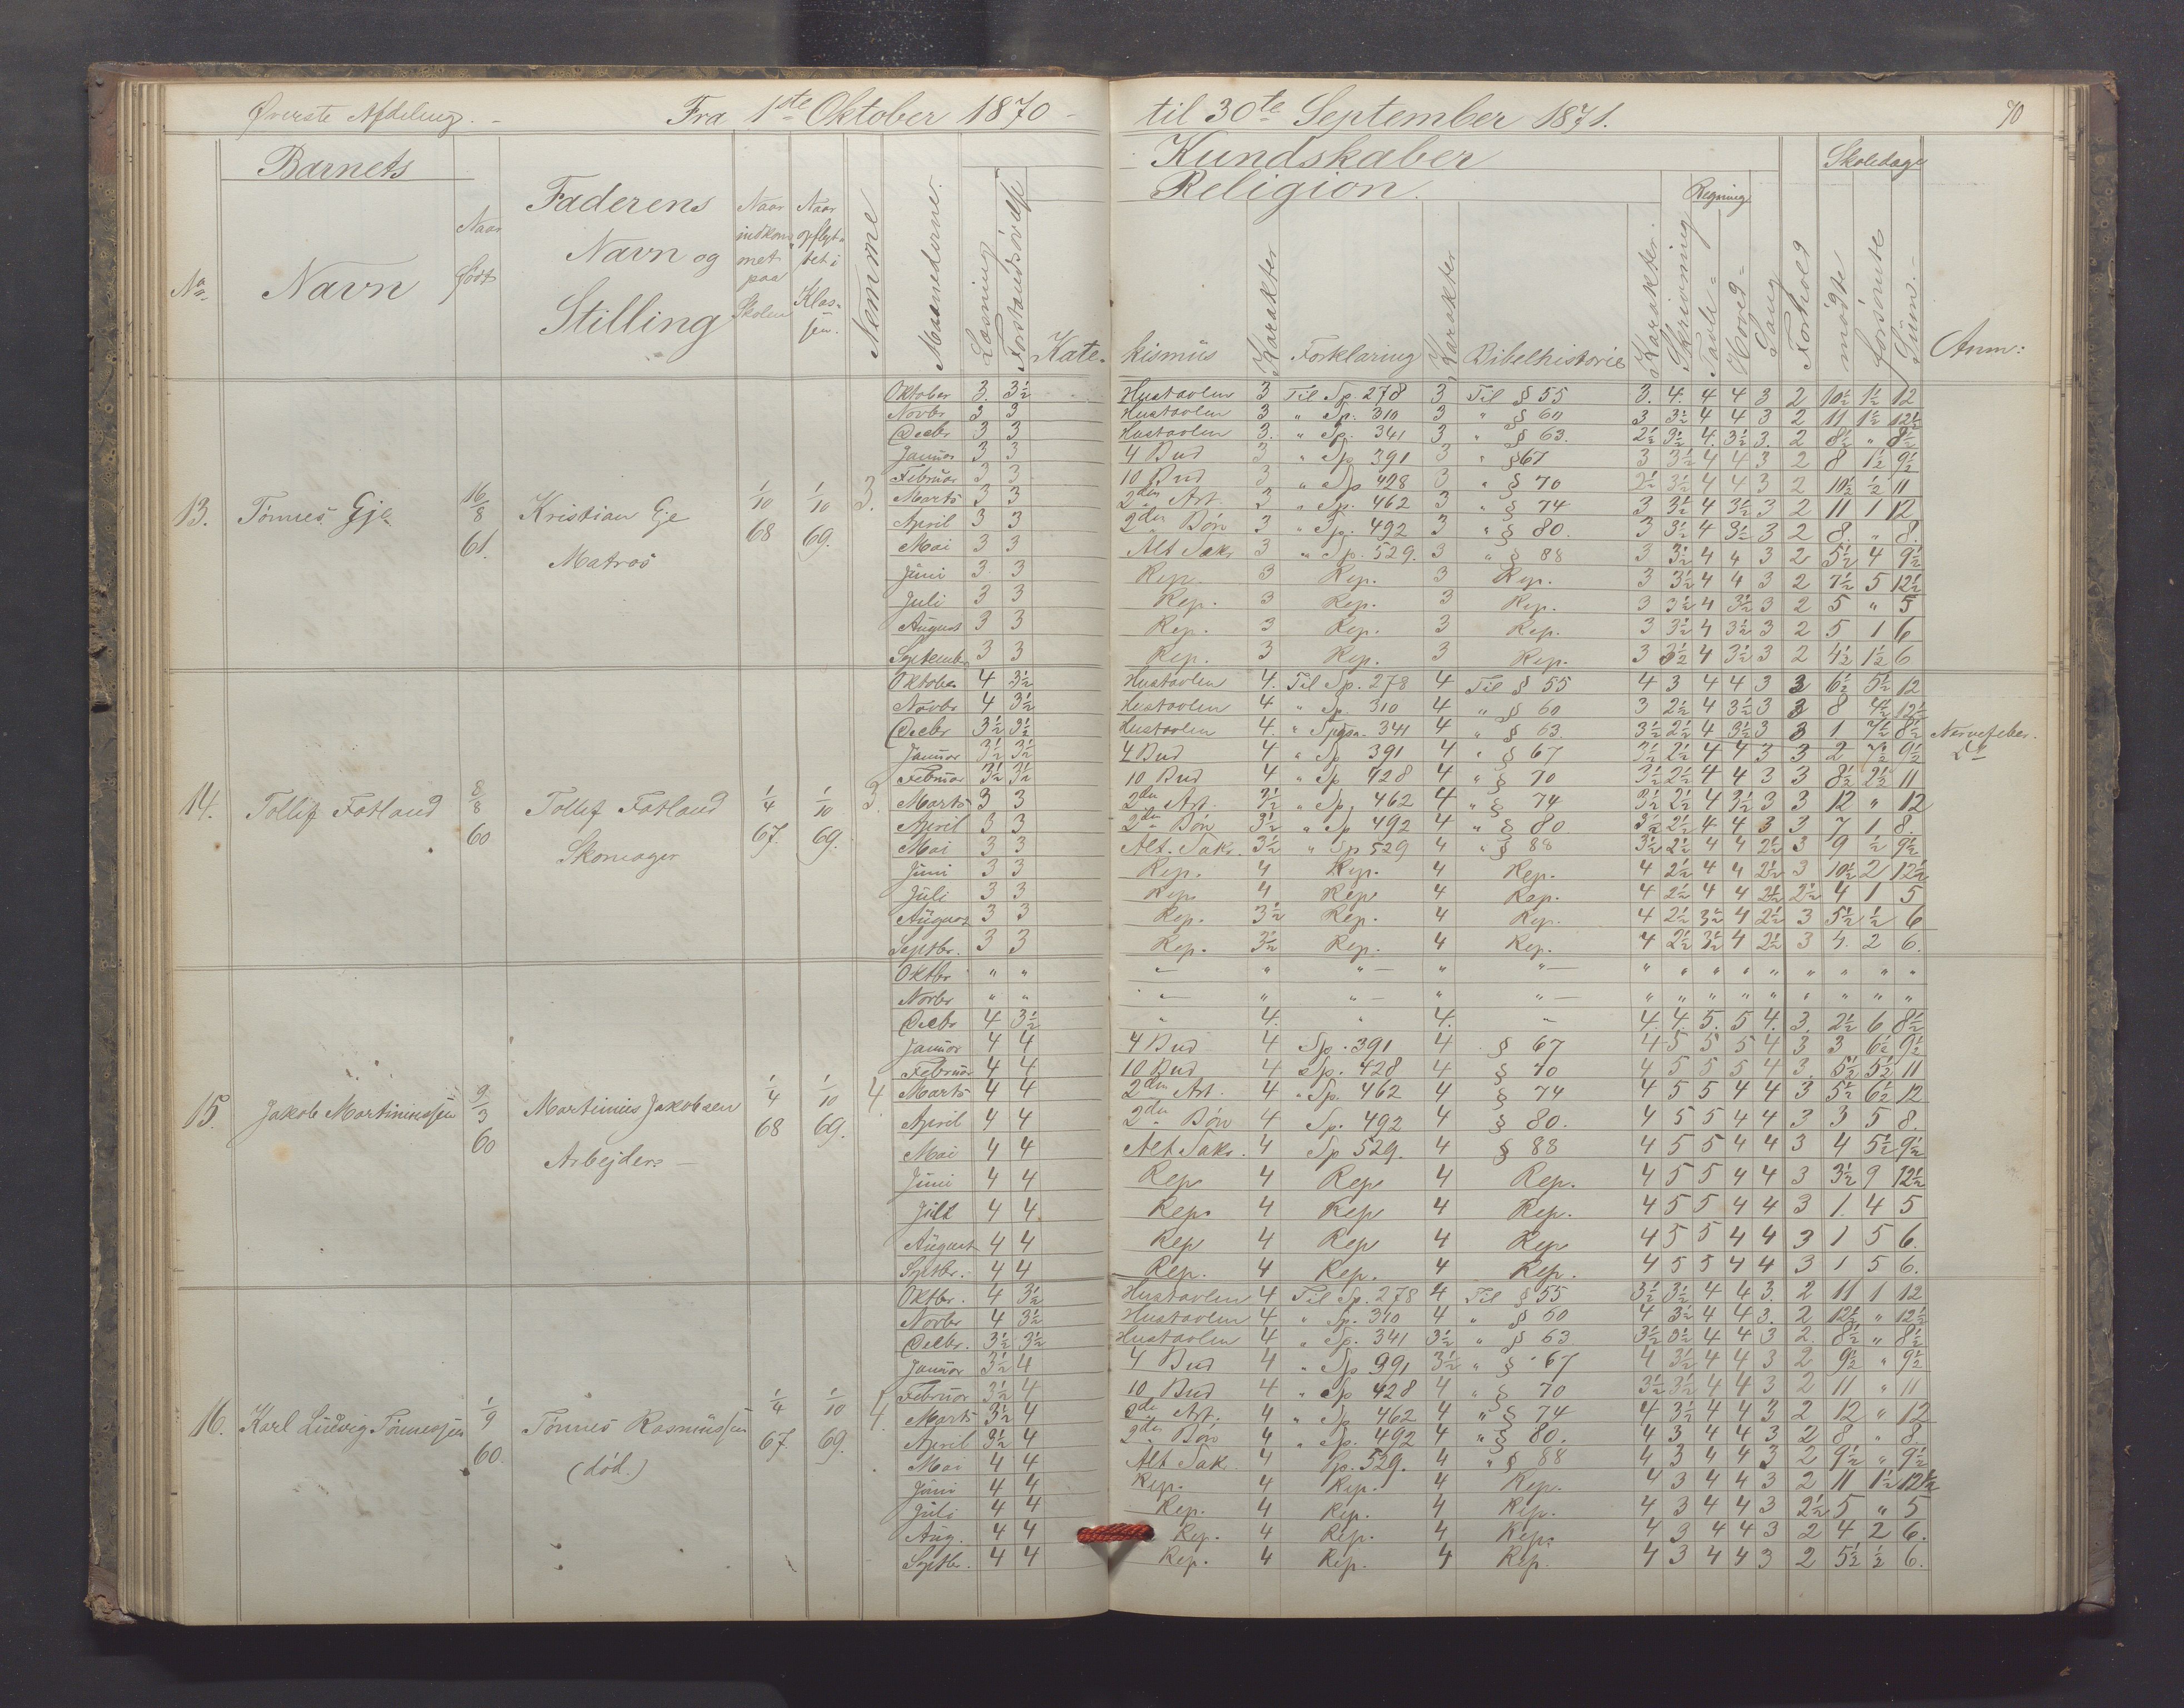 Øverste Afdeling. - Fra 1ste Oktober 1870 - til 30te September 1871. 70
Barnets Kundskaber Skoledage
Religion. Regning
No Navn Naar født Faderens Navn og Stilling Naar indkommet paa Skolen Naar opflyttet i Klassen. Nemme Maanederne. Læsning Forstandsøvelse Kate- kismus Karakter Forklaring Karakter Bibelhistorie Karakter. Skrivning Tavle= Hoved= Sang Forhold mødte forsømte Sum. Anm:
13. Tønnes Eje 16/8 61. Kristian Eje Matros 1/10 68 1/10 69. 3.
Oktober 3. 3½ Hustavlen 3 Til Sp. 278 3 Til § 55 3. 4. 4 4 3 2 10½ 1½ 12
Novbr 3 3 Hustavlen 3 " Sp. 310 3 " § 60 3 3½ 4 4 3 2 11 1½ 12½
Decbr 3 3 Hustavlen 3. " Sp. 341 3 " § 63. 2½ 3½ 4. 3½ 3. 2 8½ " 8½
Januar 3 3 4 Bud 3 " Sp 391 3 " § 67 3 3½ 4 4 3 2 8 1½ 9½
Februar 3 3 10 Bud 3 " Sp 428 3 " § 70 2½ 3½ 4 4 3 2 10½ ½ 11
Marts 3 3 2den Art. 3 " Sp. 462 3 " § 74 3 3½ 4 3½ 3 2 11 1 12
April 3 3 2den Bøn 3 " Sp. 492 3 " § 80. 3 3½ 4 3½ 3 2 8. " 8.
Mai 3 3 Alt. Sakr 3 " Sp. 529. 3 " § 88 3 3½ 4 4 3 2 5½ 4 9½
Juni 3 3 Rep. 3 Rep. 3 Rep. 3 3½ 4 4 3 2 7½ 5 12½
Juli 3 3 Rep. 3 Rep. 3 Rep. 3 3½ 4 3½ 3 2 5 " 5
August 3 3 Rep. 3 Rep. 3 Rep. 3 3½ 4 3½ 3 2 5 1 6
Septembr 3 3 Rep. 3 Rep. 3 Rep. 3 3½ 4 3½ 3 2 4½ 1½ 6
14. Tollif Fatland 8/8 60 Tollif Fatland Skomager 1/4 67. 1/10 69. 3.
Oktober 4 3½ Hustavlen 4. Til Sp. 278 4 Til § 55 4 3 4 4 3 3 6½ 5½ 12
Novbr 4 3½ Hustavlen 4 " Sp. 310 4 " § 60 3 2½ 4 3½ 3 3 8 4½ 12½
Decbr 3½ 3½ Hustavlen 4. " 341 4 " § 63. 3½ 2½ 4 3½ 3 3 1 7½ 8½ Nervefeber.
Januar 3½ 3½ 4 Bud 4 " Sp 391 4 " § 67 3½ 2½ 4 4 3 3 2 7½ 9½ Do
Februar 3½ 3½ 10 Bud 4 " Sp 428 4 " § 70 3½ 2½ 4 4 3 3 8½ 2½ 11
Marts 3 3 2den Art. 3½ " Sp. 462 4 " § 74 3½ 2½ 4 3½ 3 3 12 " 12
April 3 3 2den Bøn 3½ " Sp 492 4 " § 80. 3½ 2½ 4 4 3 3 7 1 8.
Mai 3 3 Alt. Sakr. 3½ " Sp 529 4 " § 88 3½ 2½ 4 4 2½ 3 9 ½ 9½
Juni 3 3 Rep. 4 Rep. 4 Rep. 4 2½ 4 4 2½ 3 10½ 2 12½
Juli 3 3 Rep. 4 Rep 4 Rep. 4 2½ 4 4 2½ 2½ 4 1 5
August 3 3 Rep. 3½ Rep. 4 Rep. 4 2½ 3½ 4 2½ 3 5½ ½ 6
Septbr. 3 3 Rep. 3½ Rep. 4 Rep. 4 2½ 3½ 4 2½ 3 4. 2 6.
15. Jakob Martiniussen 9/3 60 Martinius Jakobsen Arbejder - 1/4 68 1/10 69. 4
Oktbr " " " - " " - " " - " " " " " " " " "
Novbr " " " - " " - " " - " " " " " " " " "
Decbr 4 3½ " 4. " 4. " 4. 4. 5. 5 4. 3. 2½ 6 8½
Januar 4 4 4 Bud 4 Sp. 391 4 § 67 4 5 5 5 4 3 3 6½ 9½
Februar 4 4 10 Bud 4 Sp. 428 4 § 70 4 5 5 5 4 3. 5½ 5½ 11
Marts 4 4 2den Art. 4 " Sp. 462 4 § 74 4 5 5 4 4 3 5½ 6½ 12
April 4 4 2den Bøn 4 Sp. 492 4 § 80. 4 5 5 4 4 3 3 5 8.
Mai 4 4 Alt Sakr. 4 Sp 529. 4 § 88 4 5 5 4 4 3 4 5½ 9½
Juni 4 4 Rep 4 Rep 4 Rep. 4 5 5 4 4 3 3½ 9 12½
Juli 4 4 Rep. 4 Rep 4 Rep. 4 5 5 4 4 3 1. 4 5
August 4 4 Rep 4 Rep 4 Rep 4 5 5 4 4 3 1 5 6.
Septbr. 4 4 Rep. 4 Rep. 4 Rep. 4 5 5 4 4 3 1 5 6.
16. Karl Ludvig Tønnessen 1/9 60. Tønnes Rasmussen (død.) 1/4 67. 1/10 69. 4.
Oktbr. 4 3½ Hustavlen 4 Til Sp. 278 4 Til § 55 3½ 3½ 4 4 3. 2 11 1 12
Novbr 4 3½ Hustavlen 4 " Sp. 310 4 " § 60 4 3½ 4 4 3. 2 12½ " 12½
Decbr. 3½ 3½ Hustavlen 4 " Sp. 341 3½ " § 63 3½ 3½ 4 4 3 2. 8½ " 8½
Januar 3½ 4 4 Bud 4 " Sp 391 3½ " § 67 4 3½ 4 4 3 2 9½ " 9½
Februar 3½ 4 10 Bud 4 " Sp 428 4 " § 70 3½ 3½ 4 4 3 2 11 " 11
Marts 3½ 4 2den Art. 4 " Sp 462 4 " § 74 4 3½ 4 4 3 2 12 " 12
April 3½ 4 2den Bøn 4 " Sp. 492 4 " § 80. 4 3 4 4 3 2 8 " 8.
Mai 4 4 Alt Sakr. 4 Sp. 529. 4 " § 88 4 3 4 4 3 2 9½ " 9½
Juni 4 4 Rep. 4 Rep. 4 Rep. 4 3 4 4 3 2 11 1½ 12½
Juli 4 4 Rep. 4 Rep. 4 Rep. 4 3 4 4 3 2½ 5 " 5
Aug. 4 4 Rep. 4 Rep. 4 Rep. 4 3 4 4 3 2 4 2 6.
Septbr. 4 4 Rep. 4 Rep. 4 Rep. 4 3 4 4 3 2 5½ ½ 6.